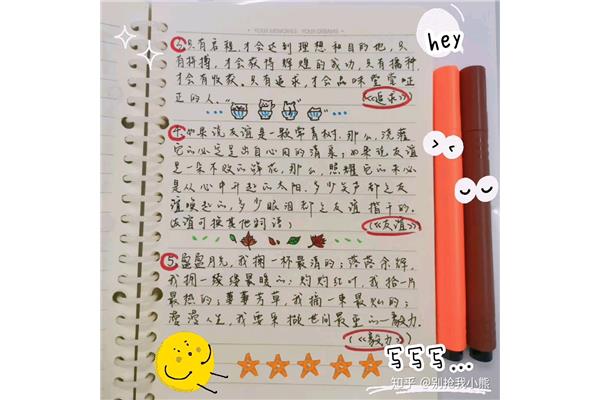 YOUR MEMORIES · YOUR DREAMS
hey
3.只有启程,才会达到理想和目的地,只
有拼搏,才会获得辉煌的成功,只有播种,
才会有收获。只有追求,才会品味堂堂正
正的人。 (《追求》)
4.如果说友谊是一颗常青树,那么,浇灌
它的必定是出自心田的清泉;如果说友谊
是一朵不败的鲜花,那么,照耀它的必
是从心中升起的太阳,多少笑声都是友
谊唤起的,多少眼泪都是友谊揩干的。
友谊可换其他词语) (《友谊》)
5.盈盈月光,我掬一杯最清的;落落余辉,
我拥一缕最暖的;灼灼红叶,我拾一片
最热的;萋萋芳草,我摘一束最灿的;
漫漫人生,我要采撷世间最重的—毅力.
(《毅力》)
写写写...
知乎 @别抢我小熊